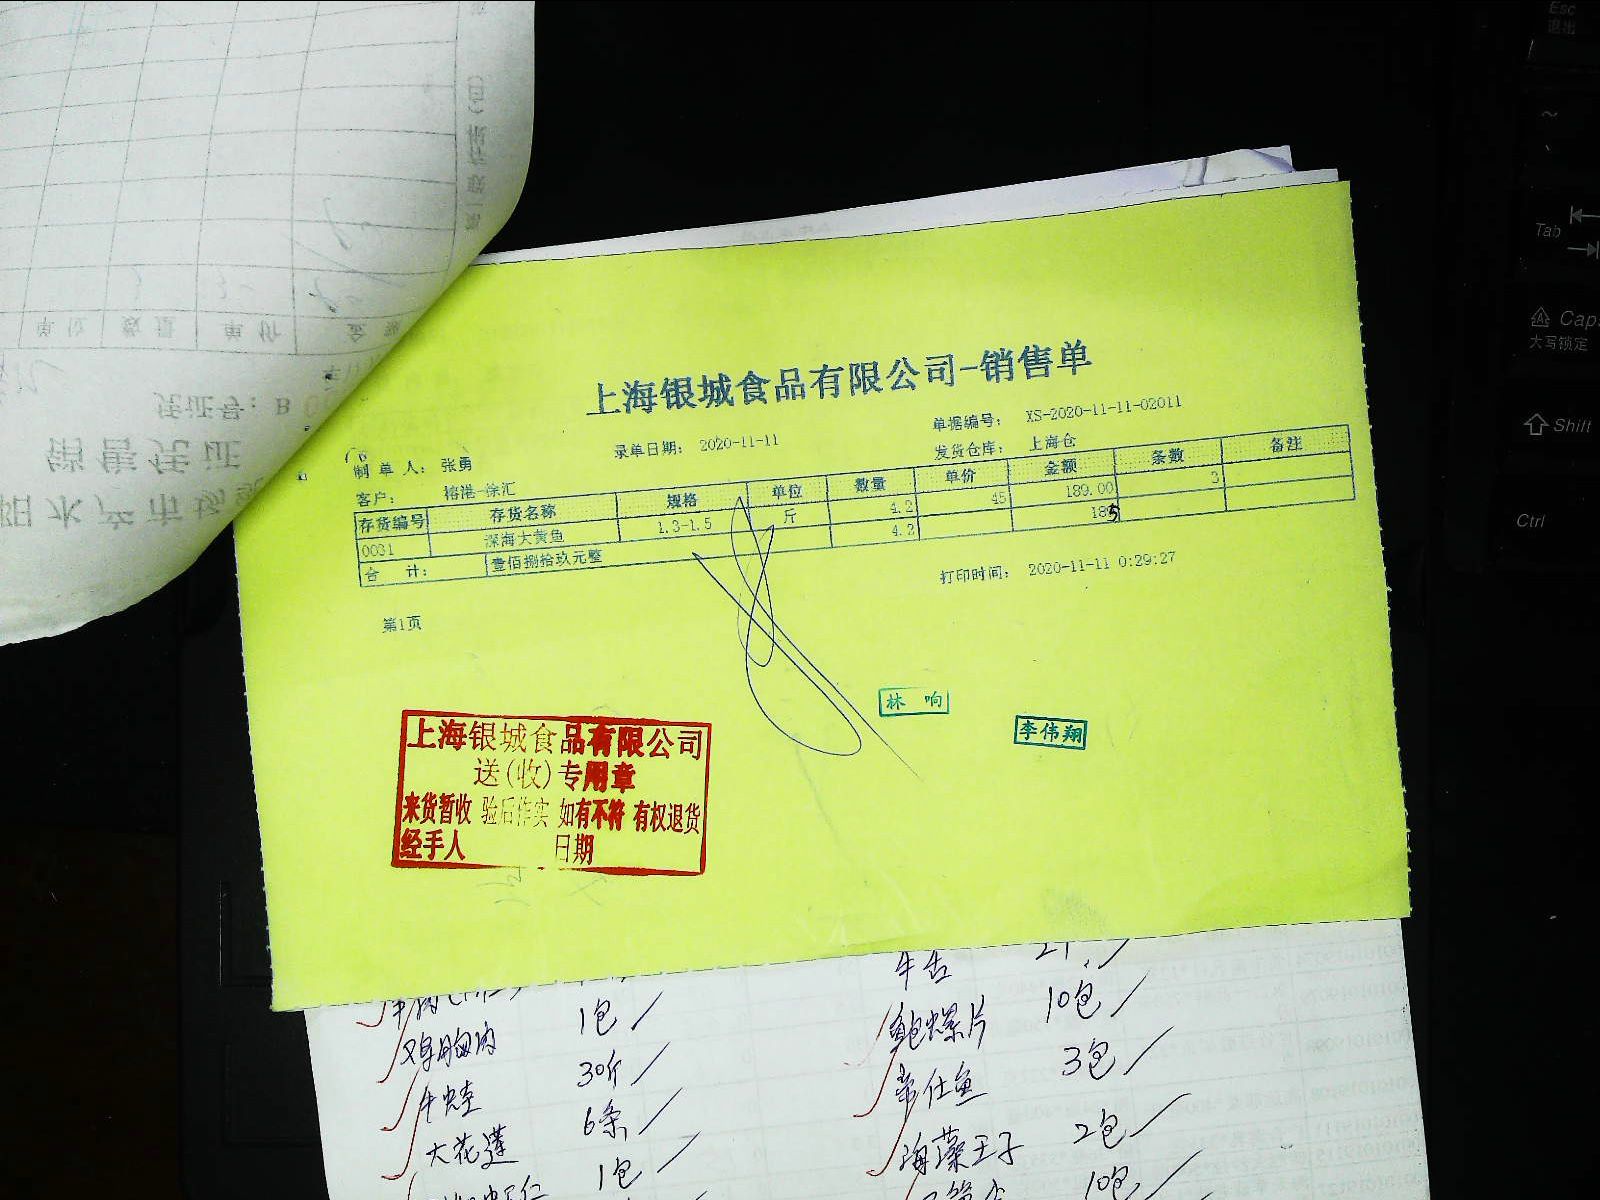 上海银城食品有限公司-销售单
单据编号： XS-2020-11-11-02011
录单日期： 2020-11-11
发货仓库： 上海仓
制 单 人： 张勇
客户： 榕港-徐汇
存货编号 存货名称 规格 单位 数量 单价 金额 条数 备注
0031 深海大黄鱼 1.3-1.5 斤 4.2 45 189.00 3
合 计： 壹佰捌拾玖元整 4.2 185
打印时间： 2020-11-11 0:29:27
第1页
林 响
李伟翔
上海银城食品有限公司
送(收)专用章
来货暂收 验后作实 如有不符 有权退货
经手人 日期
1包
鸡胸肉 30斤
牛蛙 6条
大花莲 1包
鲍螺片 10包
3包
海藻王子 2包
10包
单位 数量 单价 金额
凭证号： B
销售凭证
Esc
退出
~
Tab
Caps
大写锁定
Shift
Ctrl